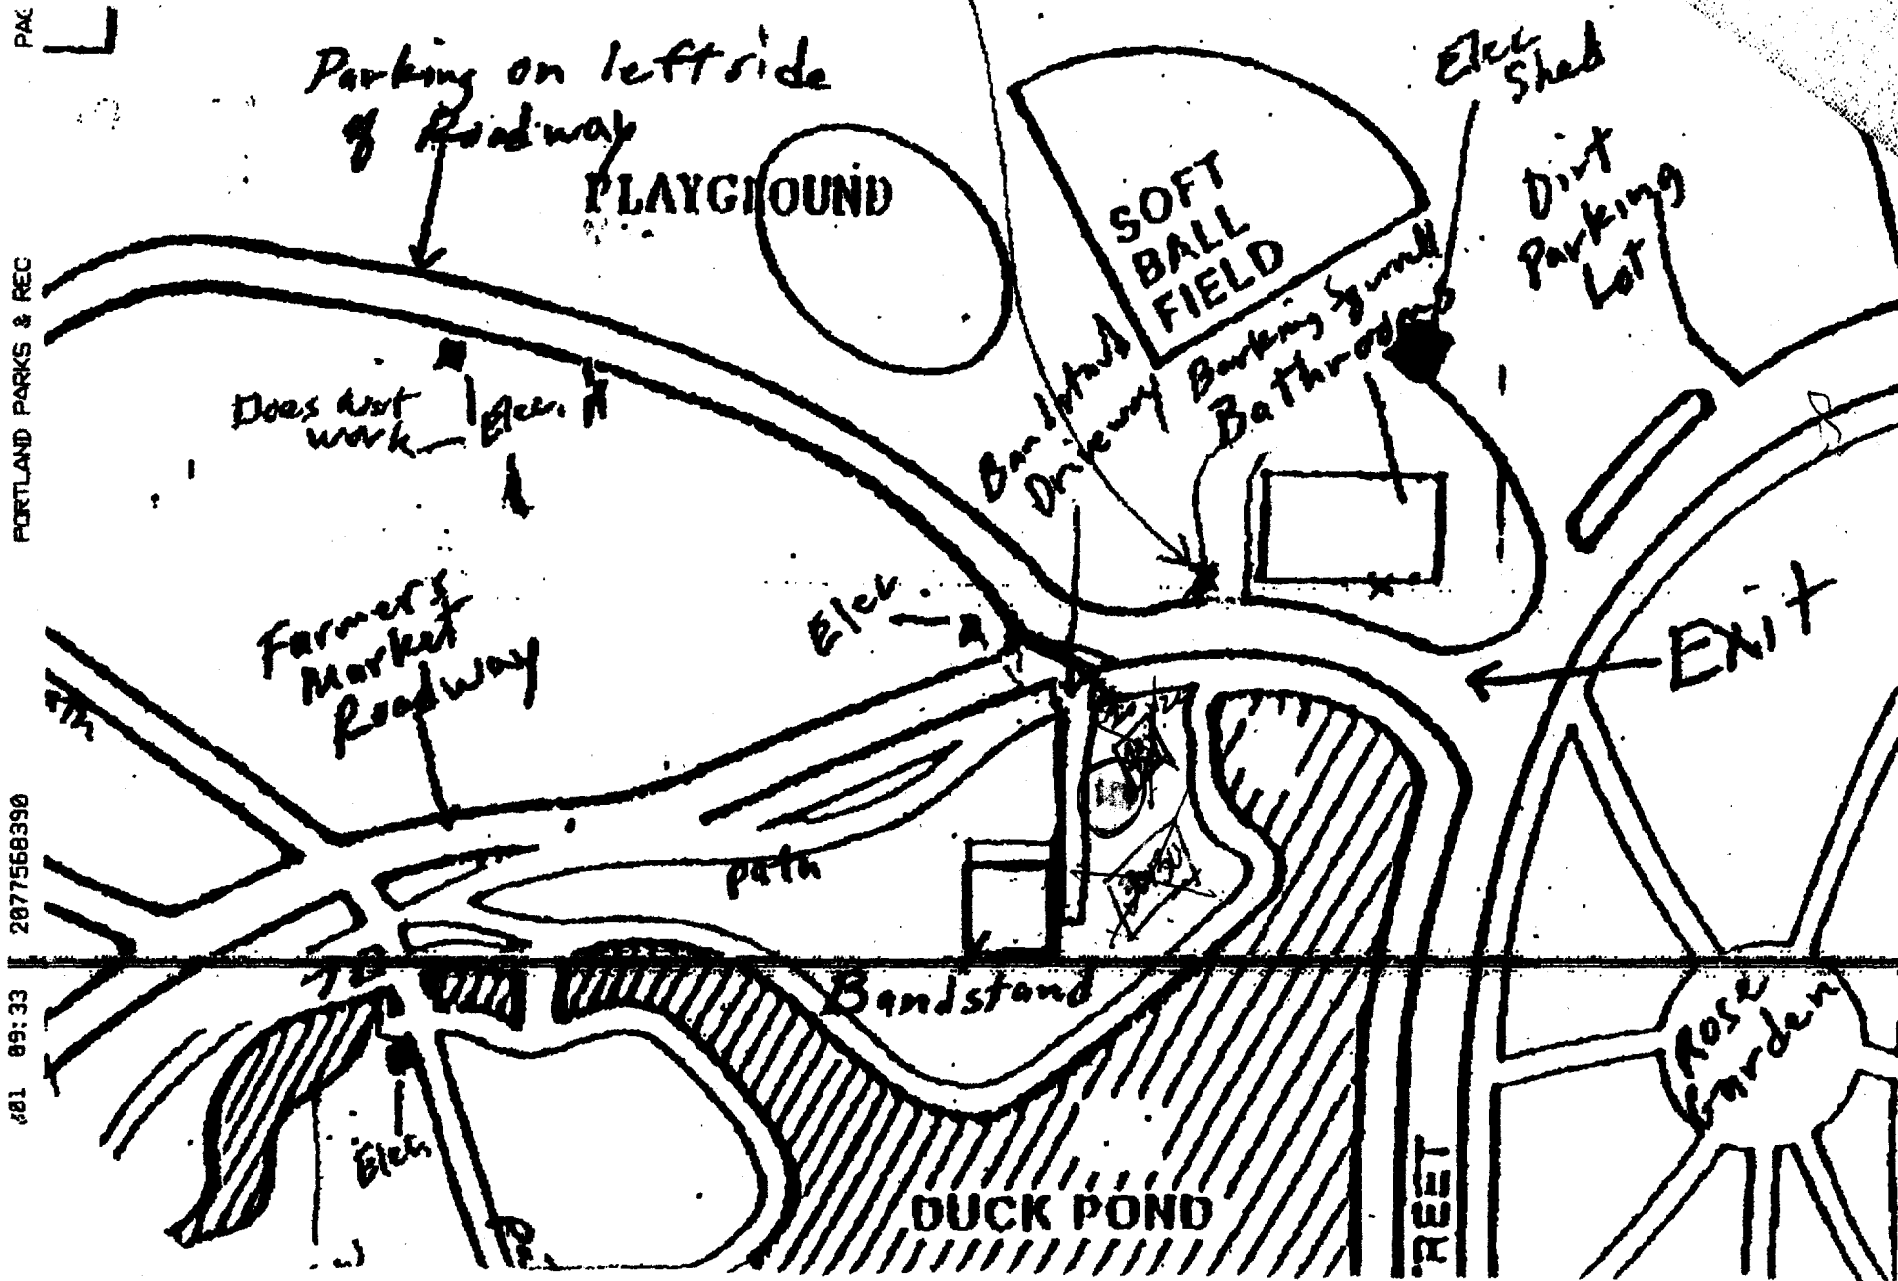 PAG
PORTLAND PARKS & REC
2077568390
09:33
Parking on left side
of Roadway
PLAYGROUND
SOFT
BALL
FIELD
Elec
Shed
Dirt
Parking
Lot
Barking Squirrell
Bathrooms
Bandstand
Driveway
Does not
work
Elec.
Elec.
Farmers
Market
Roadway
EXIT
path
Bandstand
Rose
Garden
Elec.
DUCK POND
REET